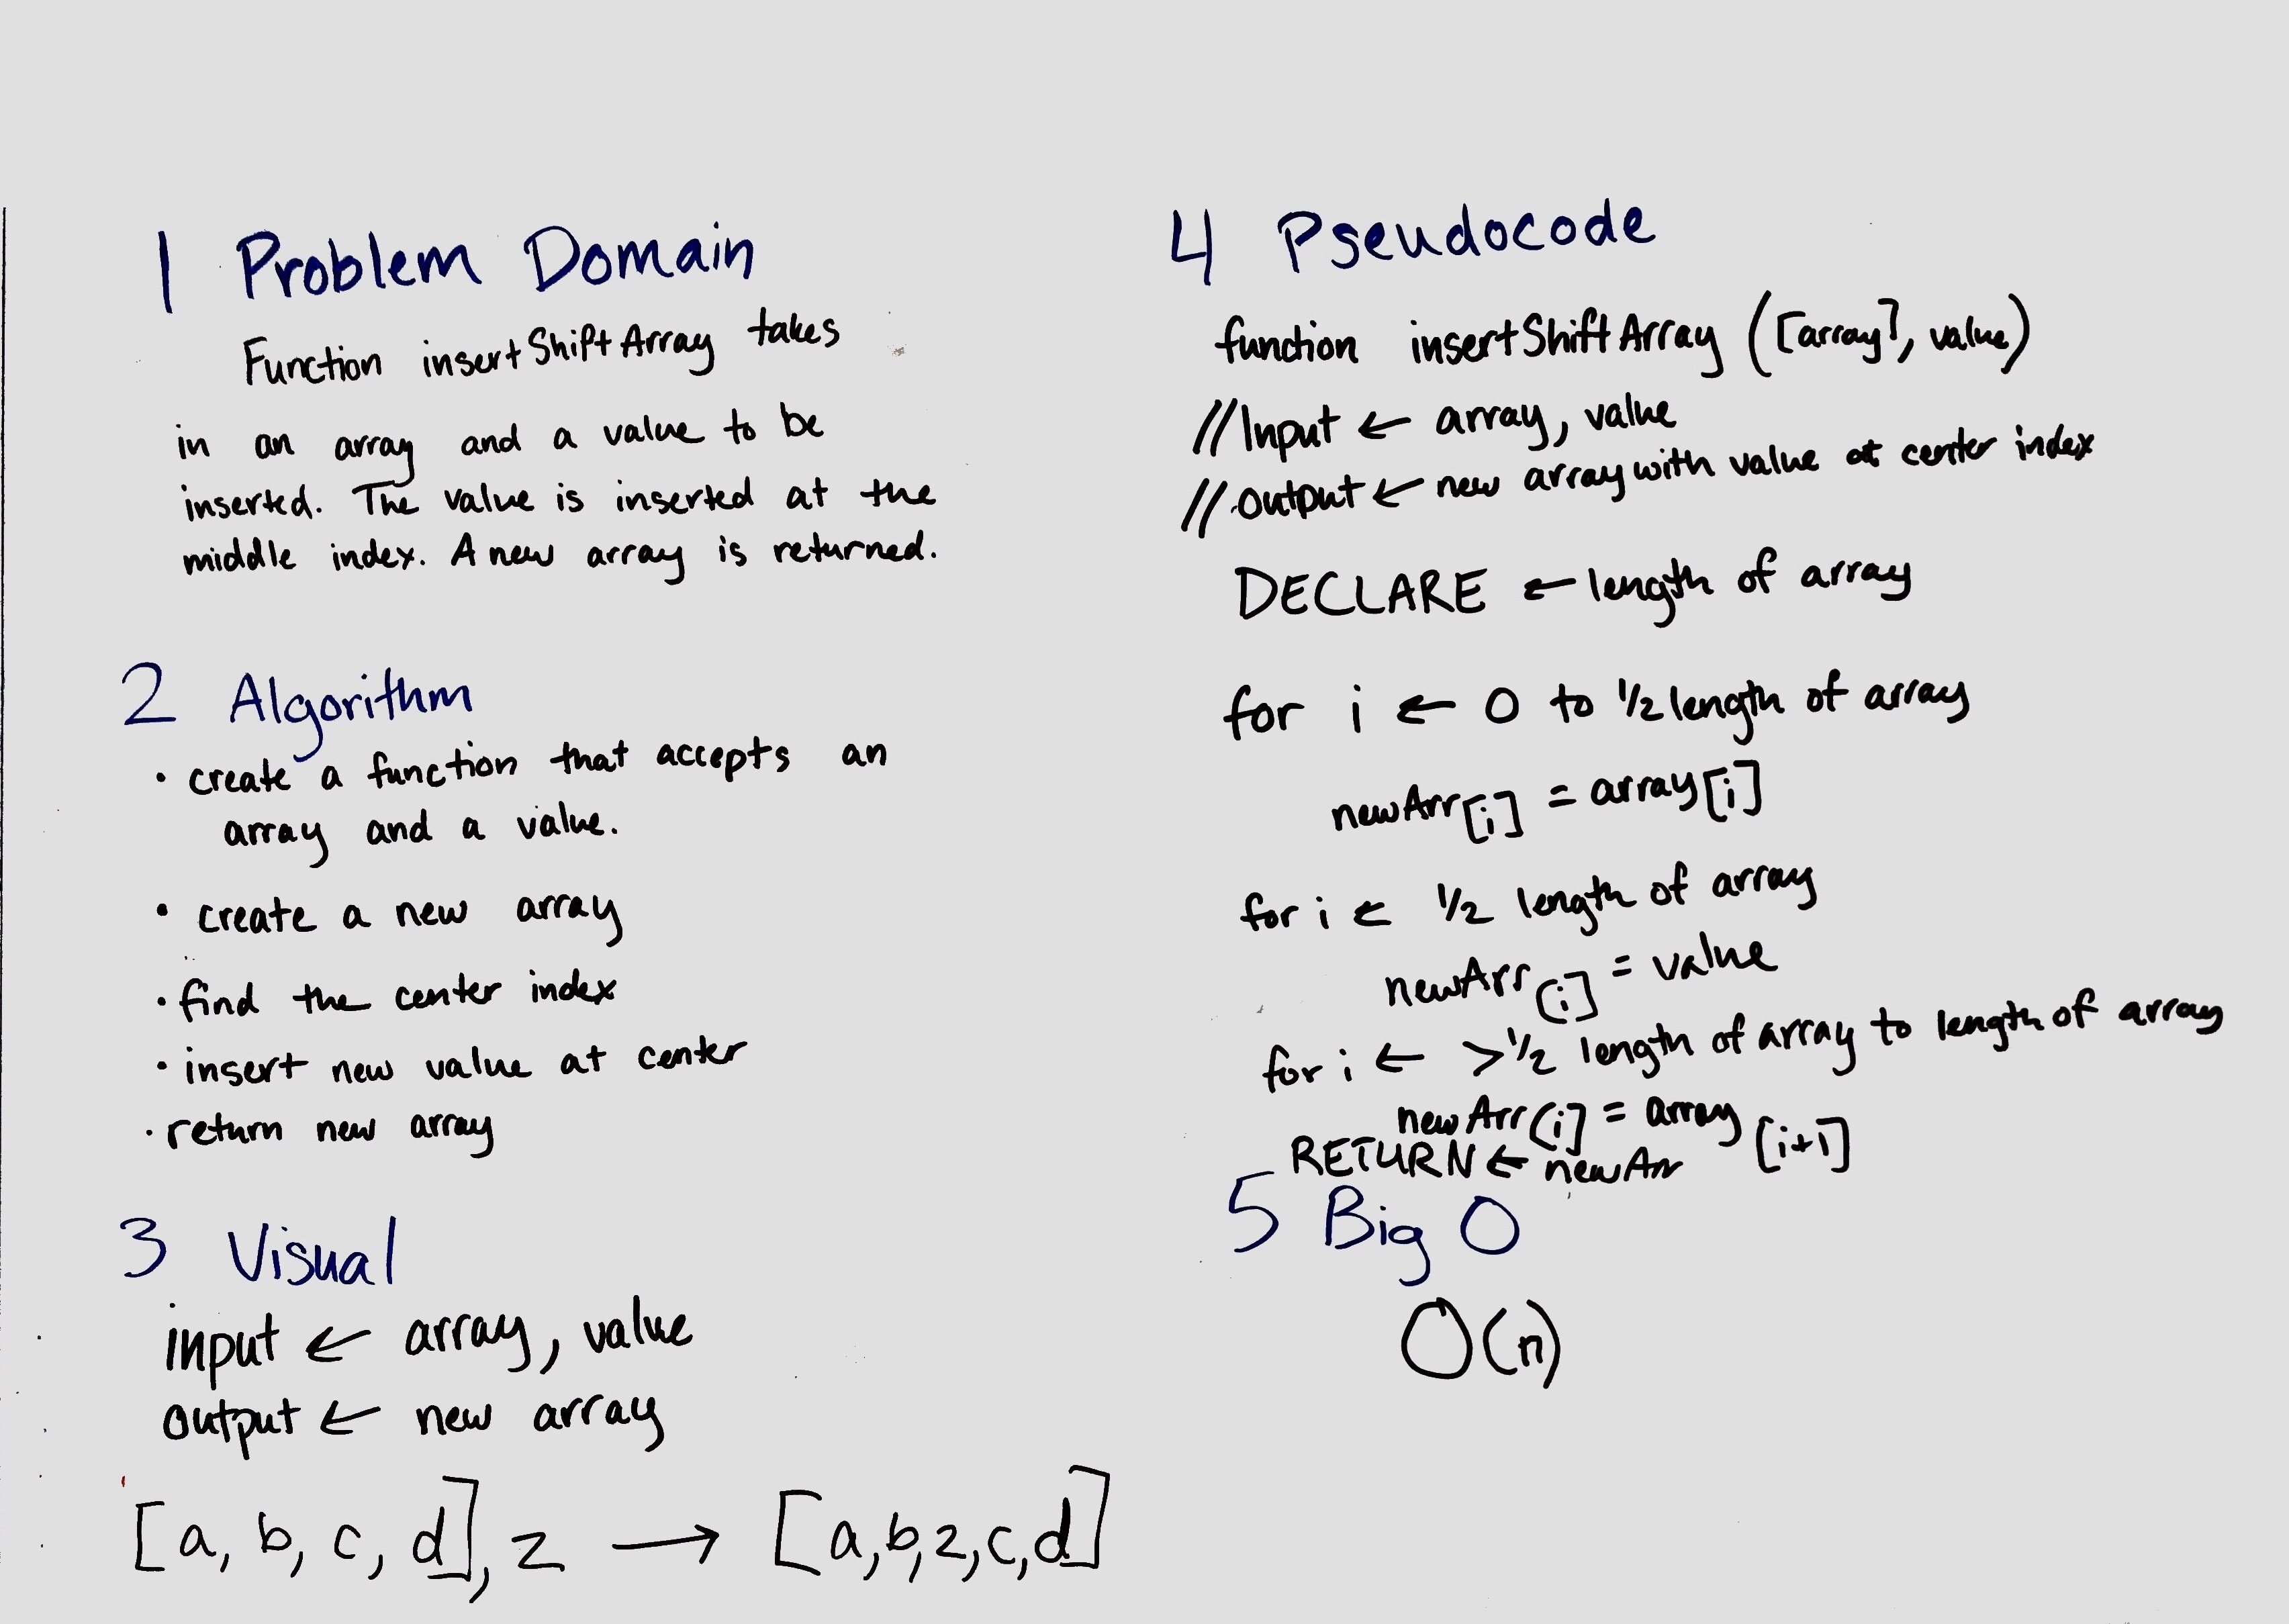 1 Problem Domain
Function insertShiftArray takes
in an array and a value to be
inserted. The value is inserted at the
middle index. A new array is returned.
2 Algorithm
• create a function that accepts an
array and a value.
• create a new array
• find the center index
• insert new value at center
• return new array
3 Visual
input ← array, value
output ← new array
[a, b, c, d], z → [a,b,z,c,d]
4 Pseudocode
function insertShiftArray ([array], value)
//Input ← array, value
//output ← new array with value at center index
DECLARE ← length of array
for i ← 0 to 1/2 length of array
newArr[i] = array[i]
for i ← 1/2 length of array
newArr[i] = value
for i ← > 1/2 length of array to length of array
newArr[i] = array[i+1]
RETURN ← newArr
5 Big O
O(n)